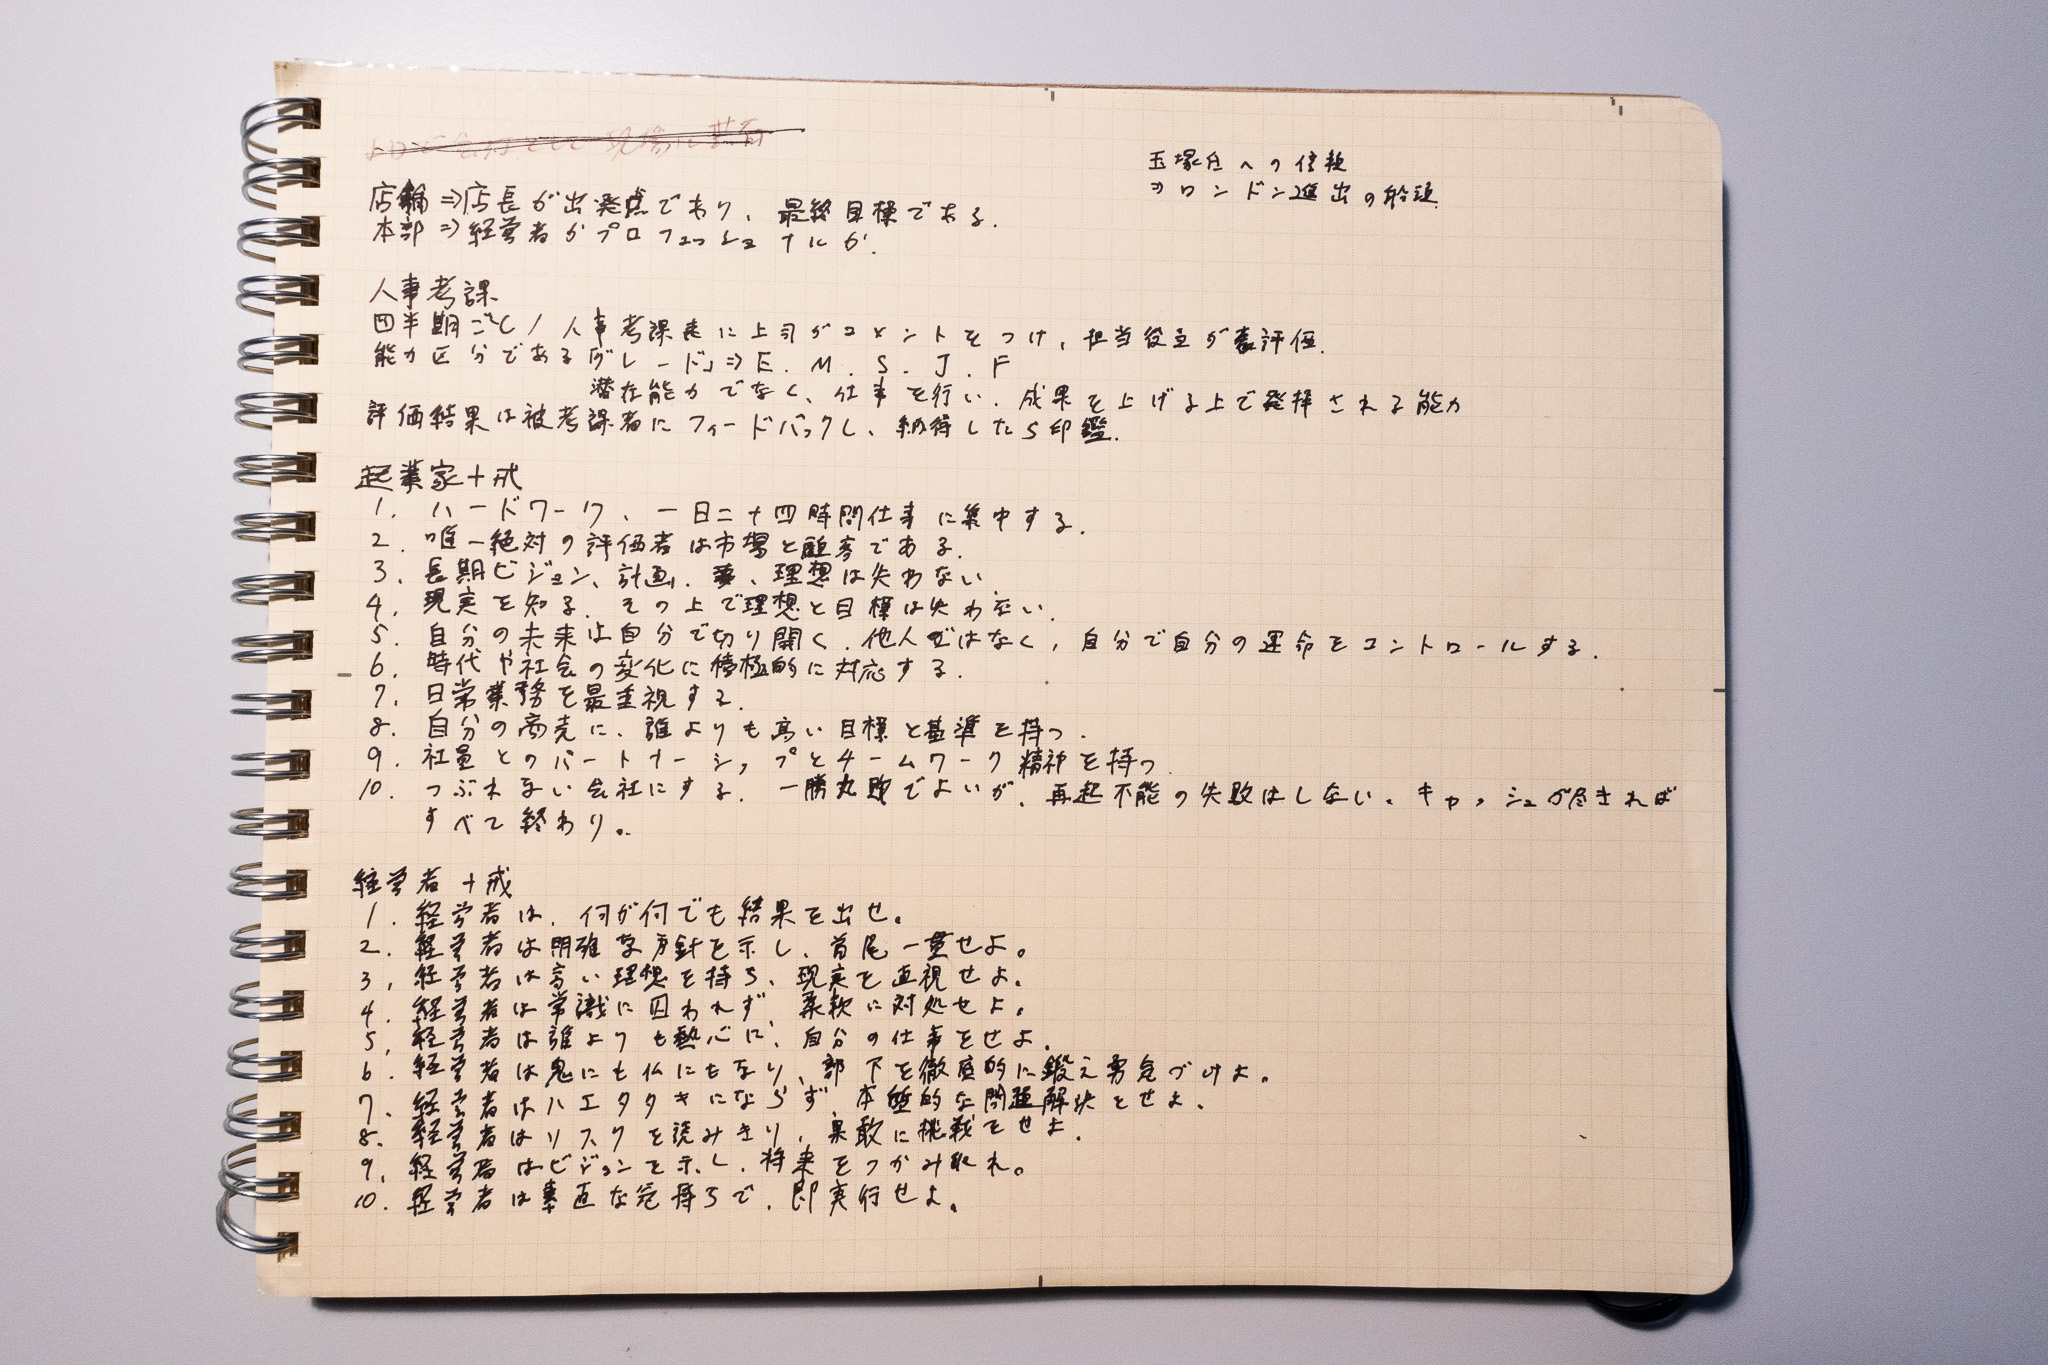 店舗⇒店長が出発点であり、最終目標である.
本部⇒経営者かプロフェッショナルか.
玉塚氏への信頼
⇒ロンドン進出の
人事考課
四半期ごと/人事考課表に上司がコメントをつけ、担当役立が評価.
能力区分である「グレード」⇒E.M.S.J.F
潜在能力でなく、仕事を行い、成果を上げる上で発揮される能力
評価結果は被考課者にフィードバックし、納得したら印鑑.
起業家十戒
1. ハードワーク、一日二十四時間仕事に集中する.
2. 唯一絶対の評価者は市場と顧客である.
3. 長期ビジョン、計画、夢、理想は失わない
4. 現実を知る.その上で理想と目標は失わない.
5. 自分の未来は自分で切り開く.他人ではなく、自分で自分の運命をコントロールする.
6. 時代や社会の変化に積極的に対応する.
7. 日常業務を最重視する.
8. 自分の商売に、誰よりも高い目標と基準を持つ.
9. 社員とのパートナーシップとチームワーク精神を持つ
10. つぶれない会社にする.一勝九敗でよいが、再起不能の失敗はしない.キャッシュが尽きれば
すべて終わり。
経営者十戒
1. 経営者は、何が何でも結果を出せ。
2. 経営者は明確な方針を示し、首尾一貫せよ。
3. 経営者は高い理想を持ち、現実を直視せよ.
4. 経営者は常識に囚われず、柔軟に対処せよ。
5. 経営者は誰よりも熱心に、自分の仕事をせよ.
6. 経営者は鬼にも仏にもなり、部下を徹底的に鍛え勇気づけよ。
7. 経営者はハエタタキにならず、本質的な問題解決をせよ.
8. 経営者はリスクを読みきり、果敢に挑戦をせよ.
9. 経営者はビジョンを示し、将来をつかみ取れ。
10. 経営者は素直な気持ちで、即実行せよ。